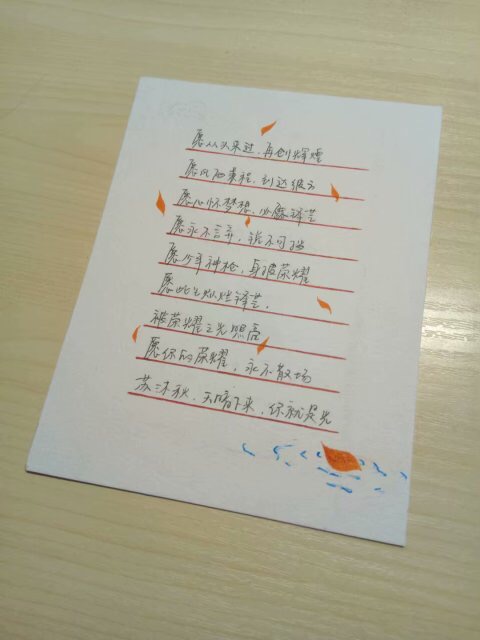 愿从头来过，再创辉煌
愿风雨兼程，到达彼方
愿心怀梦想，必露锋芒
愿永不言弃，锐不可挡
愿少年神枪，身披荣耀
愿此生灿烂锋芒，
被荣耀之光照亮
愿你的荣耀，永不散场
苏沐秋，天暗下来，你就是光